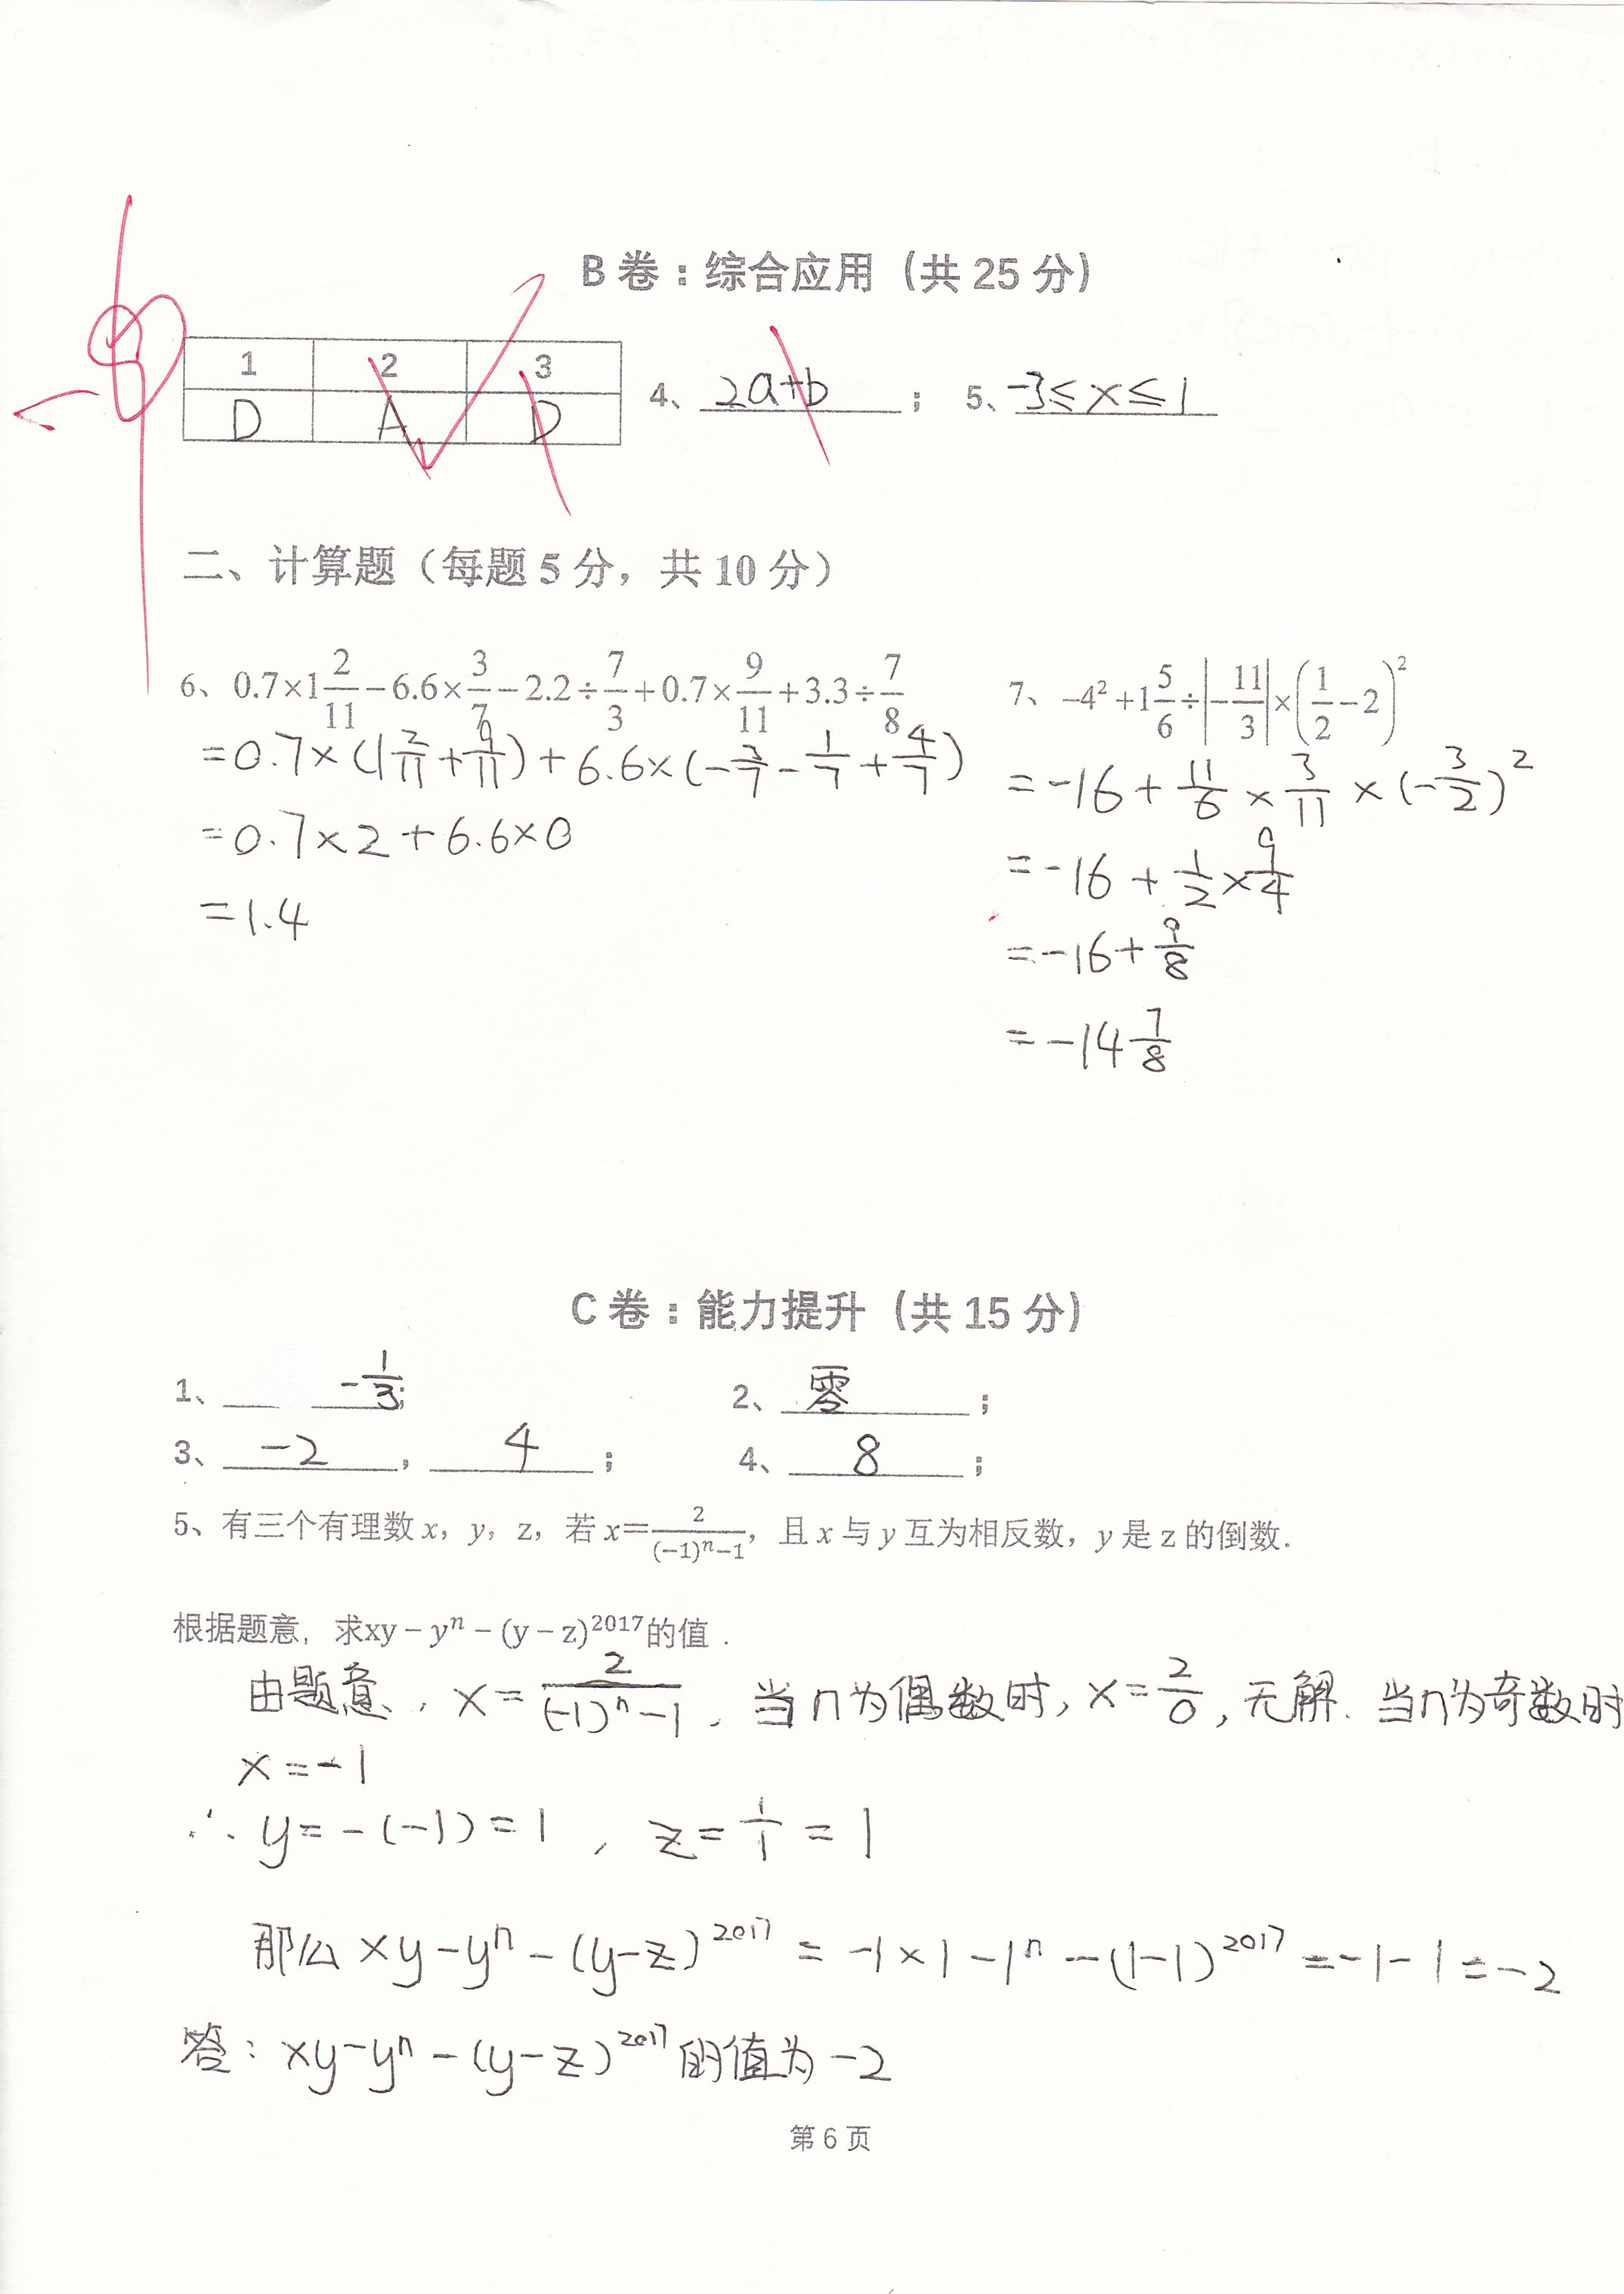 B 卷：综合应用（共 25 分）
1 2 3
D A D
4、 2a+b ； 5、 -3≤x≤1
二、计算题（每题 5 分，共 10 分）
6、 0.7×1 2/11 −6.6× 3/7 −2.2÷ 7/3 +0.7× 9/11 +3.3÷ 7/8
=0.7×(1 2/11 + 9/11)+6.6×(- 3/7 - 1/7 + 4/7)
=0.7×2+6.6×0
=1.4
7、 −4²+1 5/6 ÷|− 11/3|×(1/2 −2)²
=-16+ 11/6 × 3/11 ×(- 3/2)²
=-16+ 1/2 × 9/4
=-16+ 9/8
=-14 7/8
C 卷：能力提升（共 15 分）
1、 - 1/3 ; 2、 零 ；
3、 -2 ， 4 ； 4、 8 ；
5、有三个有理数 x，y，z，若 x＝2/((−1)ⁿ−1)，且 x 与 y 互为相反数，y 是 z 的倒数．
根据题意，求xy − yⁿ − (y − z)²⁰¹⁷的值．
由题意，x= 2/((-1)ⁿ-1)，当n为偶数时，x= 2/0，无解．当n为奇数时
x=-1
∴y=-(-1)=1，z= 1/1 =1
那么xy-yⁿ-(y-z)²⁰¹⁷=-1×1-1ⁿ-(1-1)²⁰¹⁷=-1-1=-2
答：xy-yⁿ-(y-z)²⁰¹⁷的值为-2
第 6 页